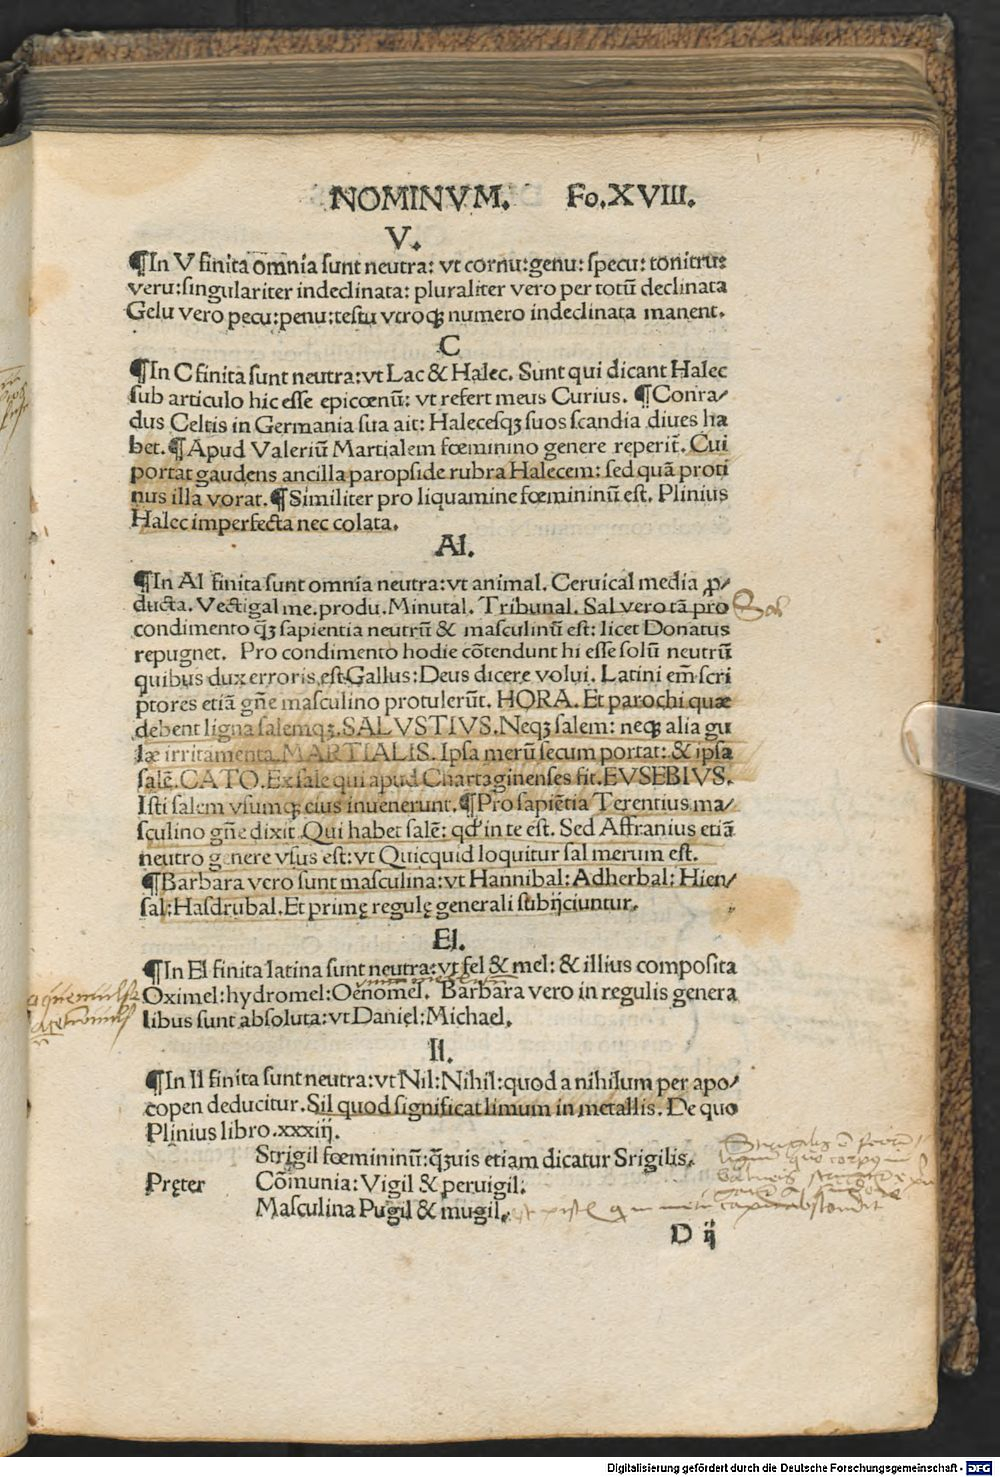 NOMINVM. Fo.XVIII.
V.
¶In V finita omnia ſunt neutra: vt cornu:genu: ſpecu: tonitru:
veru:ſingulariter indeclinata: pluraliter vero per totū declinata
Gelu vero pecu:penu:teſtu vtroqꝫ numero indeclinata manent.
C
¶In C finita ſunt neutra:vt Lac & Halec. Sunt qui dicant Halec
ſub articulo hic eſſe epicœnū: vt refert meus Curius. ¶Conra/
dus Celtis in Germania ſua ait: Haleceſqꝫ ſuos ſcandia diues ha
bet.¶Apud Valeriū Martialem fœminino genere reperit̄. Cui
portat gaudens ancilla paropſide rubra Halecem: ſed quā proti
nus illa vorat.¶Similiter pro liquamine fœmininū eſt. Plinius
Halec imperfecta nec colata.
Al.
¶In Al finita ſunt omnia neutra:vt animal. Ceruical media ꝓ/
ducta. Vectigal me.produ.Minutal. Tribunal. Sal vero tā pro
Sal
condimento q̄ꝫ ſapientia neutrū & maſculinū eſt: licet Donatus
repugnet. Pro condimento hodie cōtendunt hi eſſe ſolū neutrū
quibus dux erroris eſt Gallus:Deus dicere volui. Latini em̄ ſcri
ptores etiā gn̄e maſculino protulerūt. HORA. Et parochi quæ
debent ligna ſalemqꝫ.SALVSTIVS.Neqꝫ ſalem: neqꝫ alia gu
læ irritamenta.MARTIALIS. Ipſa merū ſecum portat: & ipſa
ſalē.CATO.Ex ſale qui apud Chartaginenſes fit.EVSEBIVS.
Iſti ſalem vſumqꝫ eius inuenerunt.¶Pro ſapiētia Terentius ma/
ſculino gn̄e dixit.Qui habet ſalē: qd' in te eſt. Sed Affranius etiā
neutro genere vſus eſt:vt Quicquid loquitur ſal merum eſt.
¶Barbara vero ſunt maſculina:vt Hannibal:Adherbal:Hien/
ſal:Haſdrubal.Et primę regulę generali ſubijciuntur.
El.
¶In El finita latina ſunt neutra:vt fel & mel: & illius compoſita
Oximel:hydromel:Oenomel. Barbara vero in regulis genera
libus ſunt abſoluta:vt Daniel:Michael.
Il.
¶In Il finita ſunt neutra:vt Nil:Nihil:quod a nihilum per apo/
copen deducitur.Sil quod ſignificat limum in metallis. De quo
Plinius libro.xxxiij.
Strigil fœmininū:q̄ꝫuis etiam dicatur Srigilis.
Pręter Cōmunia:Vigil & peruigil.
Maſculina Pugil & mugil.
D ij
Digitalisierung gefördert durch die Deutsche Forschungsgemeinschaft - DFG